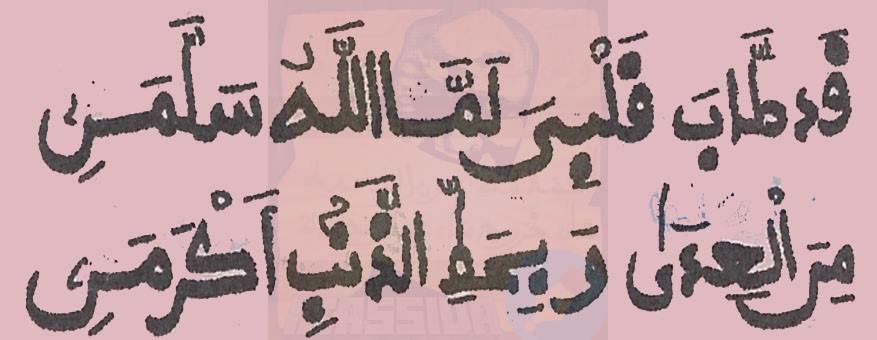 قَد طَّابَ قَلْبِيَ لَمَّا اللَّهُ سَلَّمَنِي
مِنَ الْعِدَى وَبِحَطِّ الذَّنْبِ اَكْرَمَنِي